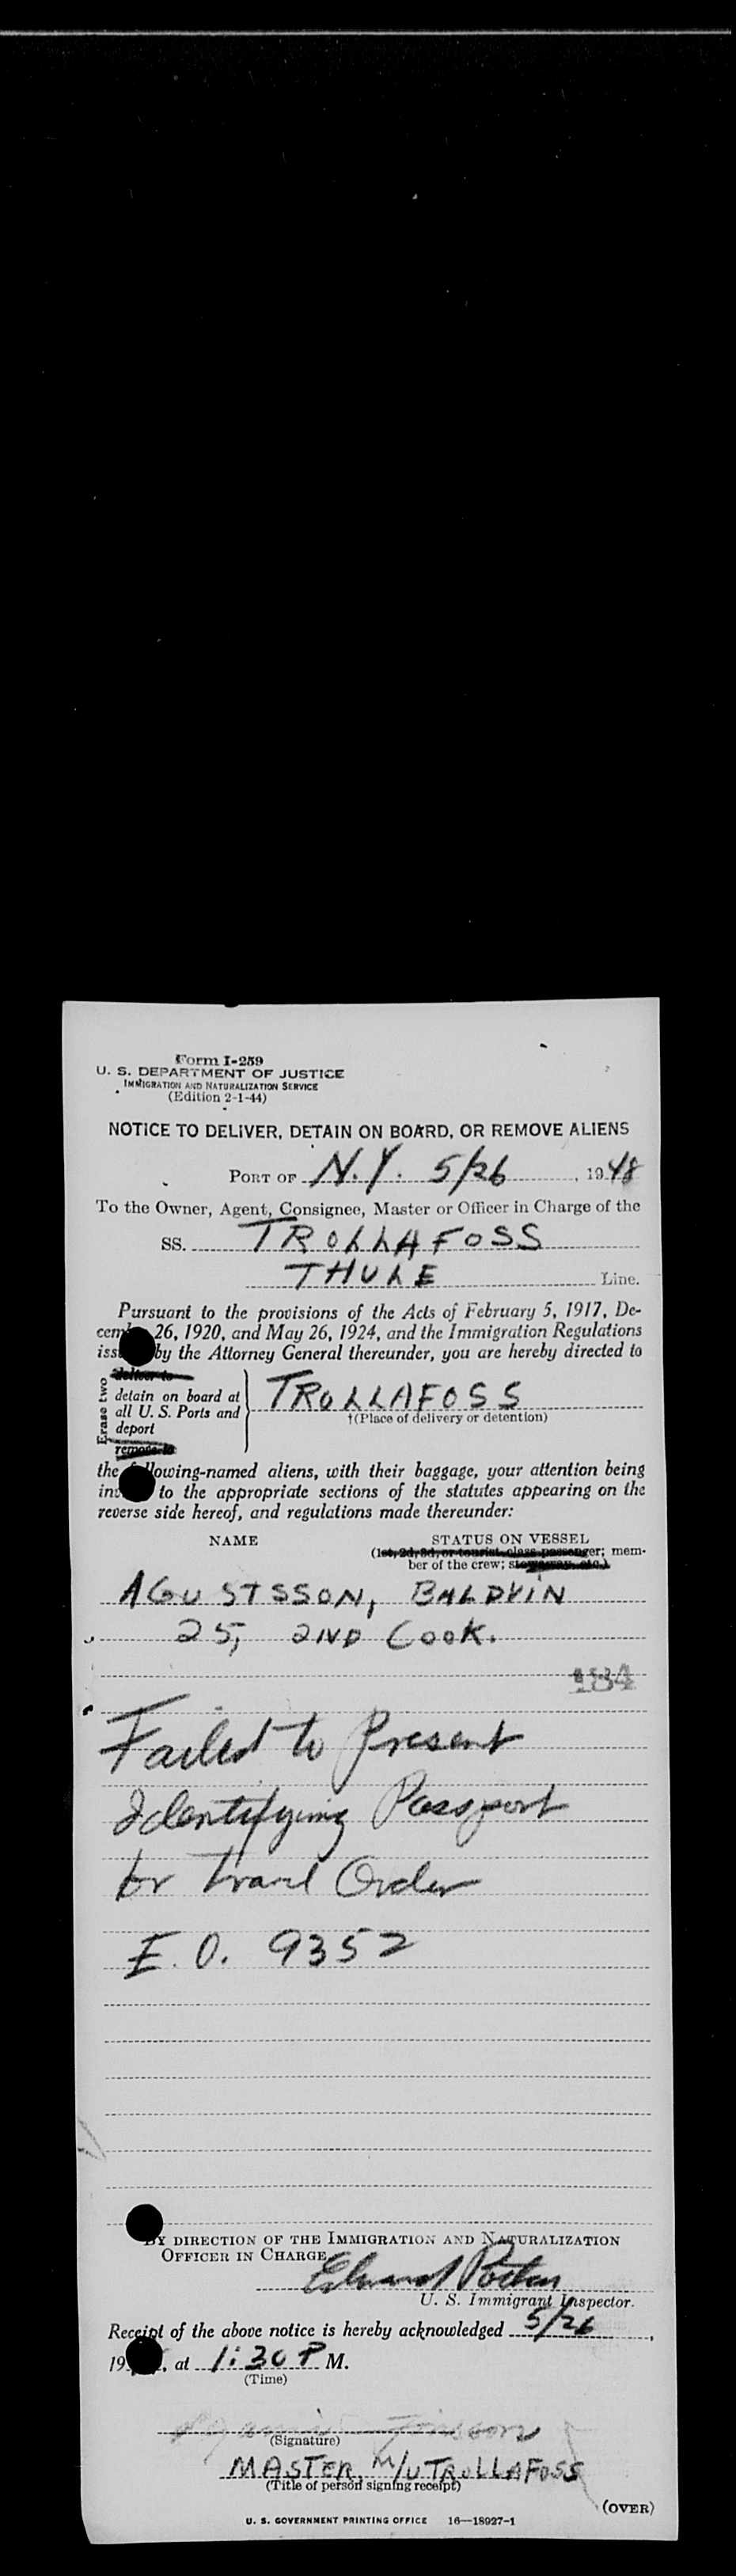 Form I-259
U. S. DEPARTMENT OF JUSTICE
IMMIGRATION AND NATURALIZATION SERVICE
(Edition 2-1-44)
NOTICE TO DELIVER, DETAIN ON BOARD, OR REMOVE ALIENS
PORT OF N.Y. 5/26, 1948
To the Owner, Agent, Consignee, Master or Officer in Charge of the
SS. TROLLAFOSS
THULE Line.
Pursuant to the provisions of the Acts of February 5, 1917, De-
cem 26, 1920, and May 26, 1924, and the Immigration Regulations
iss by the Attorney General thereunder, you are hereby directed to
Erase two
deliver to
detain on board at
all U. S. Ports and
deport
remove to
TROLLAFOSS
†(Place of delivery or detention)
the llowing-named aliens, with their baggage, your attention being
in to the appropriate sections of the statutes appearing on the
reverse side hereof, and regulations made thereunder:
NAME STATUS ON VESSEL
(1st, 2d, 3d, or tourist class passenger; mem-
ber of the crew; stowaway, etc.)
AGUSTSSON, BALDVIN
25, 2ND COOK.
184
Failed to Present
Identifying Passport
or Travel Order
E.O. 9352
BY DIRECTION OF THE IMMIGRATION AND NATURALIZATION
OFFICER IN CHARGE
Edward
U. S. Immigrant Inspector.
Receipt of the above notice is hereby acknowledged 5/26,
19 , at 1:30 P M.
(Time)
(Signature)
MASTER M/V TROLLAFOSS
(Title of person signing receipt)
(OVER)
U. S. GOVERNMENT PRINTING OFFICE 16—18927-1